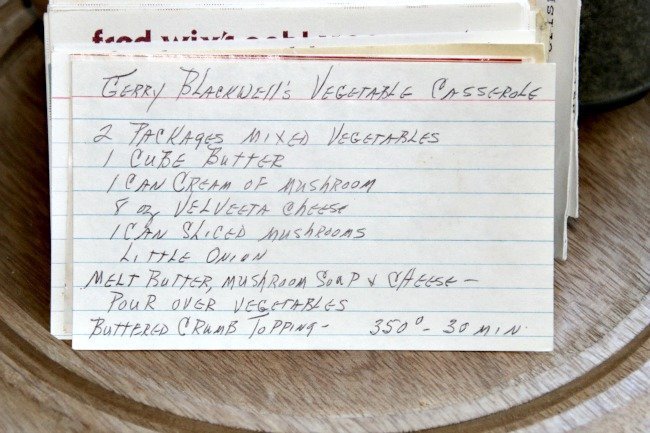 fred wix's
Gerry Blackwell's Vegetable Casserole
2 Packages Mixed Vegetables
1 Cube Butter
1 Can Cream of Mushroom
8 oz Velveeta Cheese
1 Can Sliced Mushrooms
Little Onion
Melt Butter, Mushroom Soup & Cheese -
Pour over vegetables
Buttered Crumb Topping - 350° - 30 min.